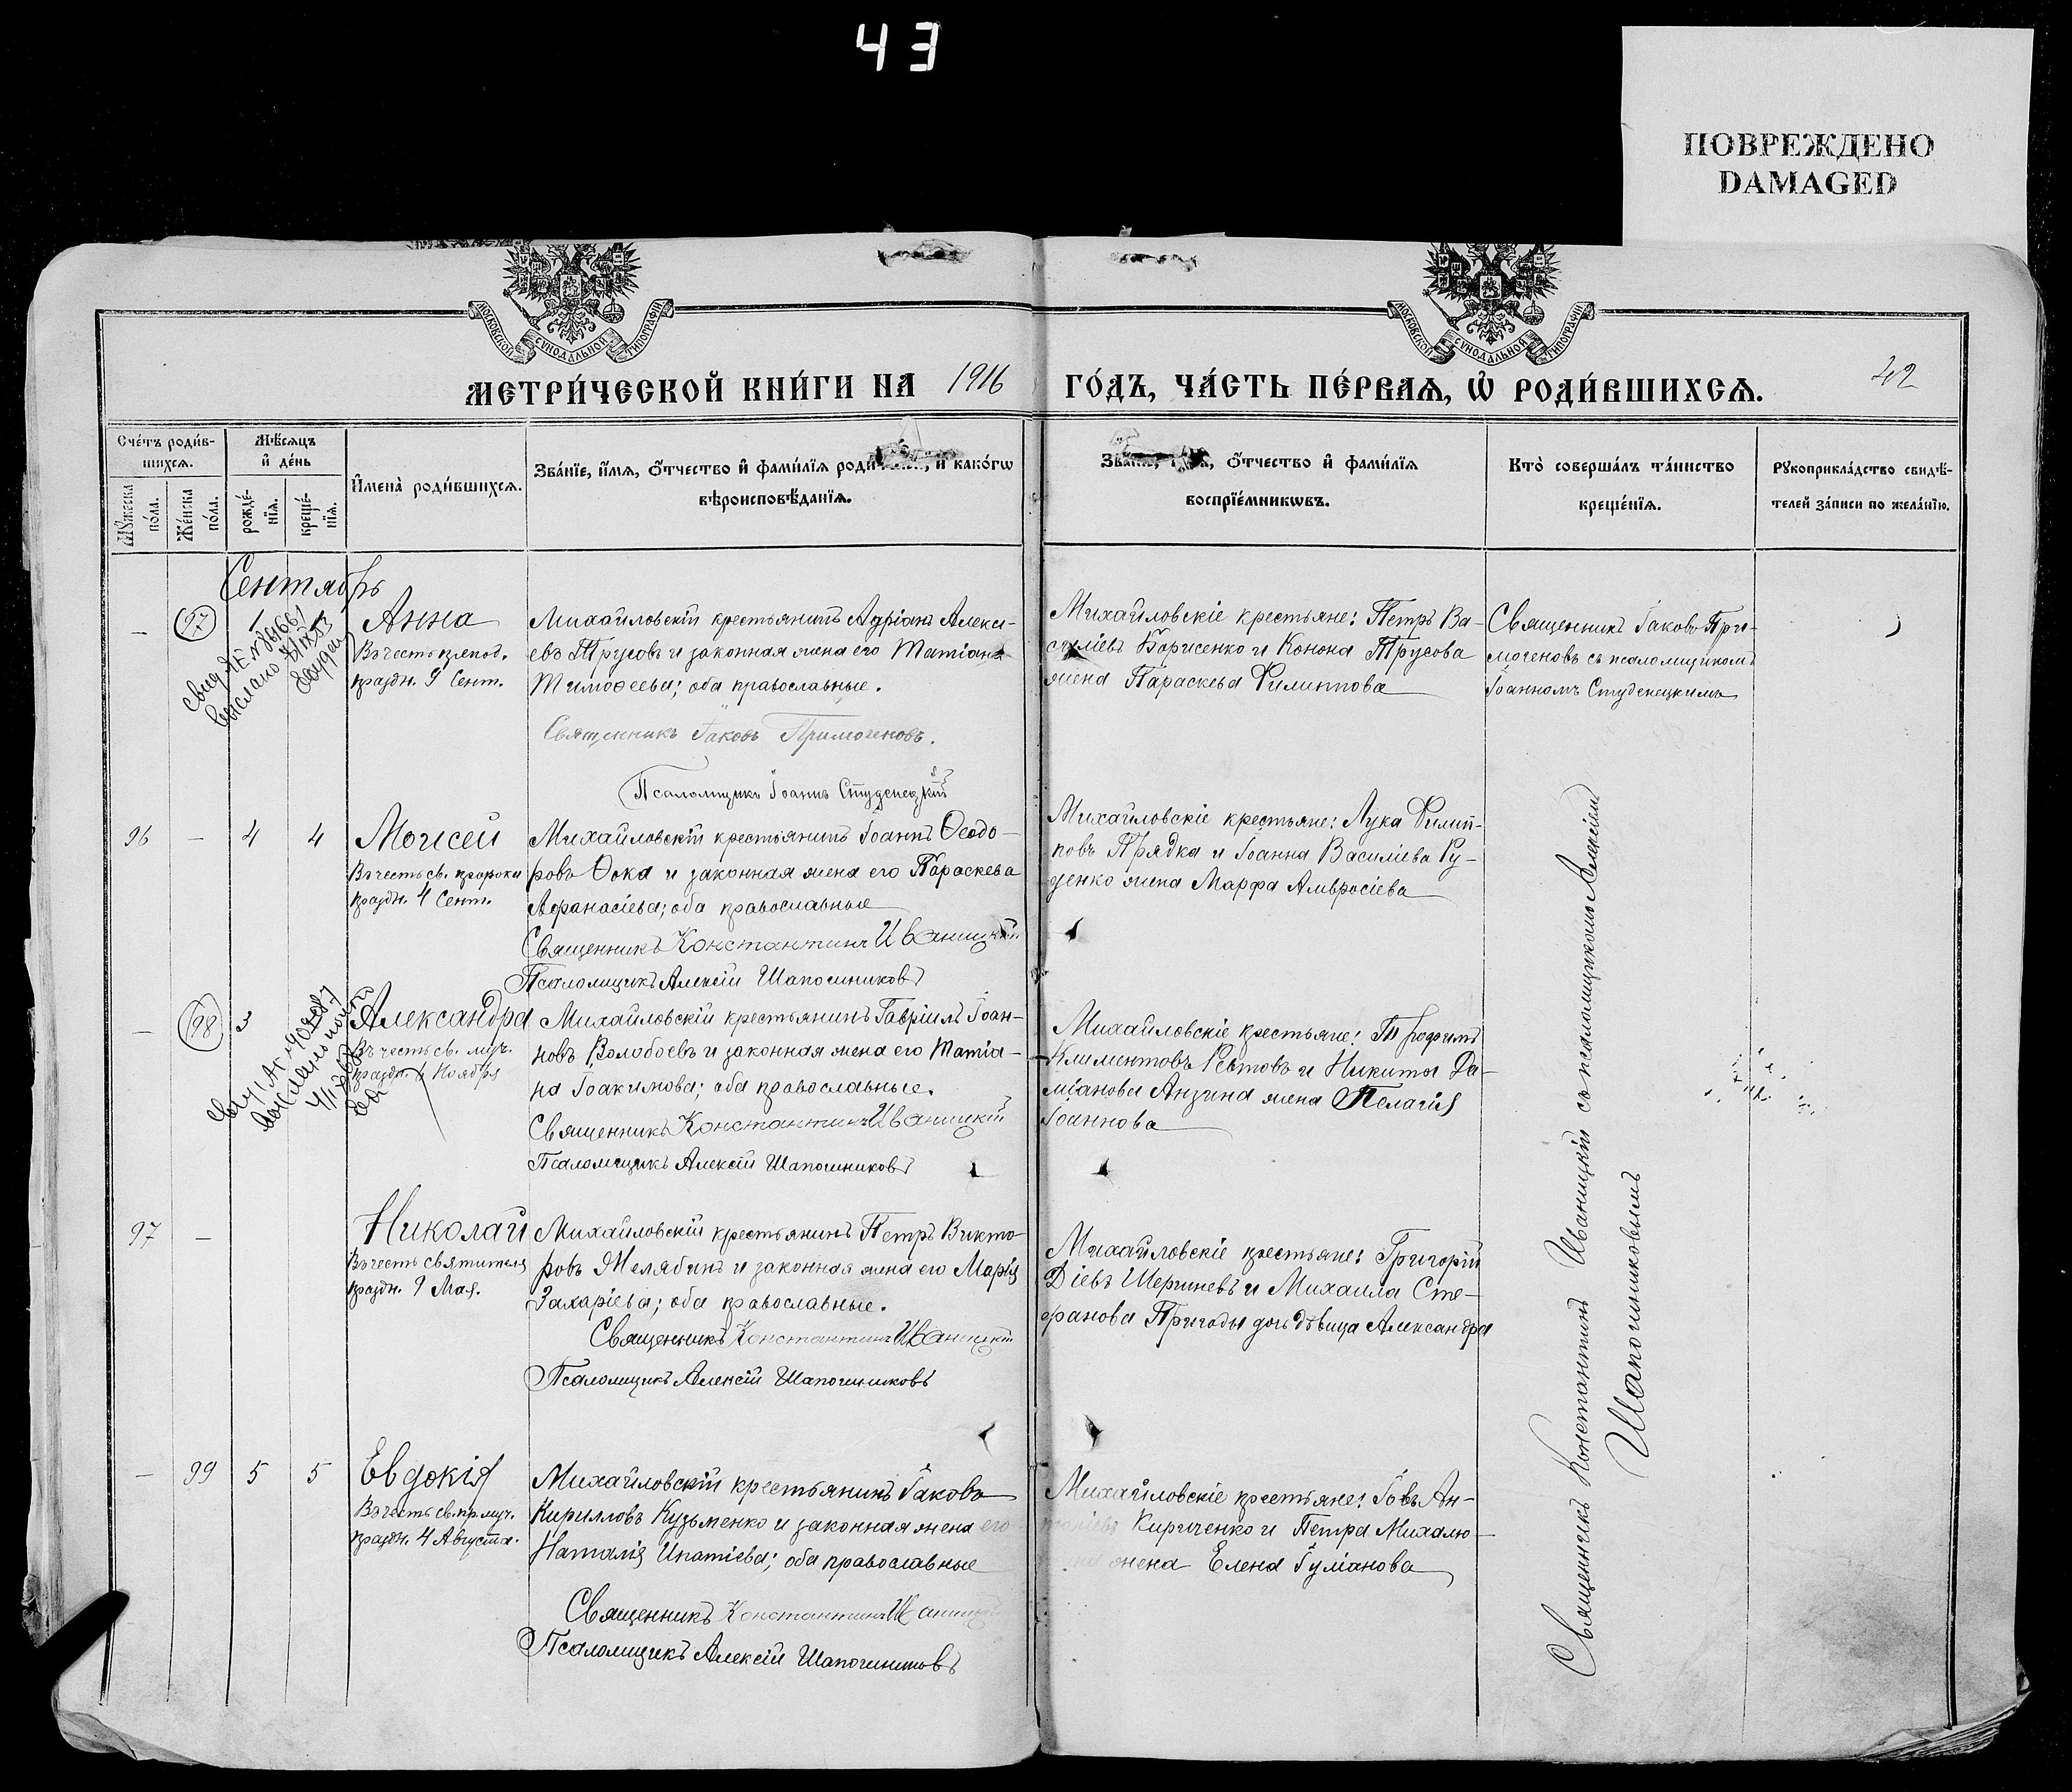 43
ПОВРЕЖДЕНО
DAMAGED
МОСКОВСКОЙ СѴНОДАЛЬНОЙ ТИПОГРАФІИ
МОСКОВСКОЙ СѴНОДАЛЬНОЙ ТИПОГРАФІИ
МЕТРИ́ЧЕСКОЙ КНИ́ГИ НА 1916 ГО́ДЪ, ЧА́СТЬ ПЕ́РВАѦ, Ѡ҆ РОДИ́ВШИХСѦ.
42
Сче́тъ роди́в-
шихсѧ.
Мѹжеска
по́ла.
Же́нска
по́ла.
Мѣ́сѧцъ
и҆ де́нь
рожде́-
нїѧ.
креще́-
нїѧ.
И҆мена̀ роди́вшихсѧ.
Зва́нїе, и҆́мѧ, ѻ҆́тчество и҆ фами́лїѧ и҆ како́гѡ
вѣроисповѣ́данїѧ.
ѻ҆́тчество и҆ фами́лїѧ
воспрїе́мникѡвъ.
Кто̀ соверша́лъ та́инство
креще́нїѧ.
Рѹкоприкла́дство свидѣ́-
телей за́писи по жела́нїю.
Сентябрь
— 97 1 Анна
Въ честь препод.
праздн. 9 Сент.
Михайловскій крестьянинъ Адріанъ Алексі-
евъ Трусовъ и законная жена его Татіана
Тимоѳеева; оба православные.
Священникъ Іаковъ Примогеновъ.
Псаломщикъ Іоаннъ Студенецкій
Михайловскіе крестьяне: Петръ Ва-
силіевъ Борисенко и Конона Трусова
жена Параскева Филиппова
Священникъ Іаковъ При-
могеновъ съ псаломщикомъ
Іоанномъ Студенецкимъ
96 — 4 4 Моисей
Въ честь св. пророка
праздн. 4 Сент.
Михайловскій крестьянинъ Іоаннъ Ѳеодо-
ровъ Ѳока и законная жена его Параскева
Аѳанасіева; оба православные
Священникъ Константинъ Иваницкій
Псаломщикъ Алексій Шапошниковъ
Михайловскіе крестьяне: Лука Филип-
повъ Прядка и Іоанна Василіева Ру-
денко жена Марфа Амвросіева
— 98 3 Александра
Въ честь св. муч.
праздн. 6 Ноября
Михайловскій крестьянинъ Гавріилъ Іоан-
новъ Волобоевъ и законная жена его Татіа-
на Іоакимова; оба православные.
Священникъ Константинъ Иваницкій
Псаломщикъ Алексій Шапошниковъ
Михайловскіе крестьяне: Трофимъ
Климентовъ Ревтовъ и Никиты Да-
міанова Анзина жена Пелагія
Іоаннова
97 — Николай
Въ честь святителя
праздн. 9 Мая.
Михайловскій крестьянинъ Петръ Викто-
ровъ Желябинъ и законная жена его Марія
Захаріева; оба православные.
Священникъ Константинъ Иваницкій
Псаломщикъ Алексій Шапошниковъ
Михайловскіе крестьяне: Григорій
Діевъ Шершневъ и Михаила Сте-
фанова Пригоды дочь дѣвица Александра
— 99 5 5 Евдокія
Въ честь св. пр. муч.
праздн. 4 Августа.
Михайловскій крестьянинъ Іаковъ
Кирилловъ Кузьменко и законная жена его
Наталія Ипатіева; оба православные
Священникъ Константинъ Иваницкій
Псаломщикъ Алексій Шапошниковъ
Михайловскіе крестьяне: Іовъ Ан-
Кириченко и Петра Михалю-
жена Елена Гуміанова
Священникъ Константинъ Иваницкій съ псаломщикомъ Алексіемъ
Шапошниковымъ